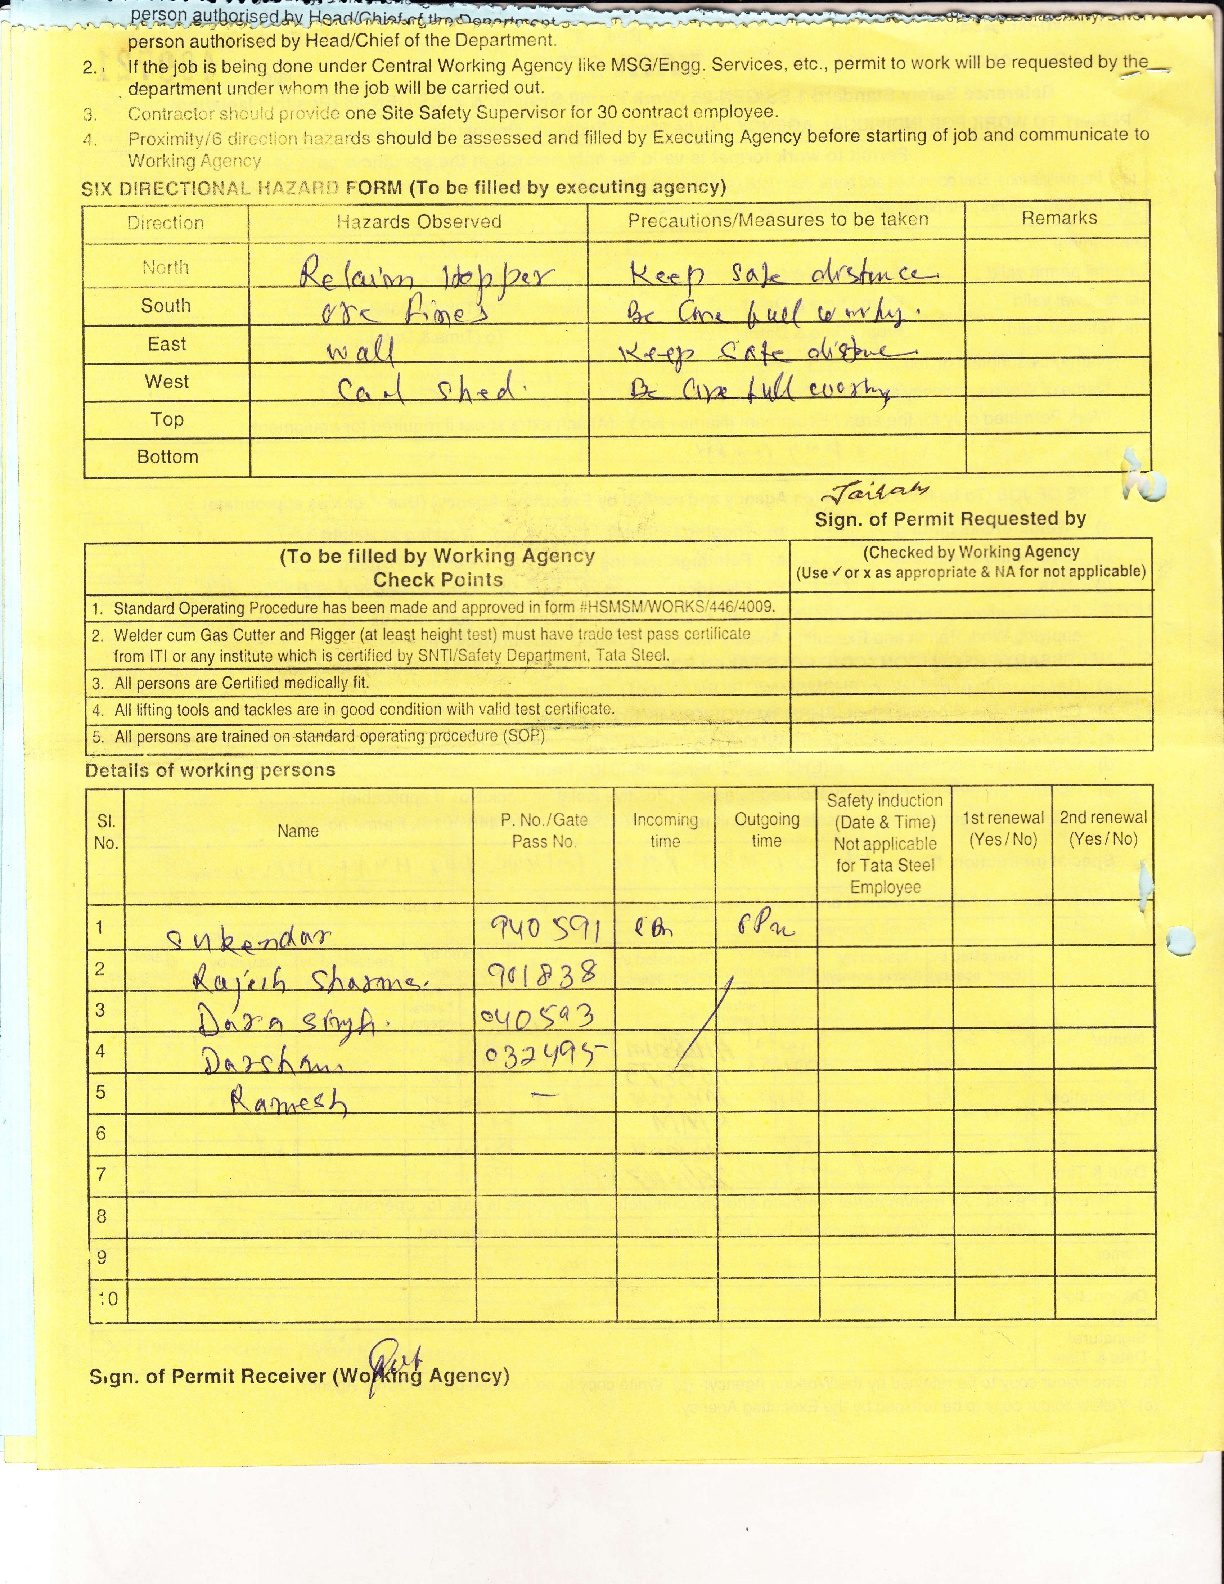 person authorised by Head/Chief of the Department.
person authorised by Head/Chief of the Department.
2. If the job is being done under Central Working Agency like MSG/Engg. Services, etc., permit to work will be requested by the
department under whom the job will be carried out.
3. Contractor should provide one Site Safety Supervisor for 30 contract employee.
4. Proximity/6 direction hazards should be assessed and filled by Executing Agency before starting of job and communicate to
Working Agency
SIX DIRECTIONAL HAZARD FORM (To be filled by executing agency)
Direction Hazards Observed Precautions/Measures to be taken Remarks
North Relaim Hopper Keep safe distance
South ore fines Be Care full
East wall Keep Safe
West shed. Be Care full
Top
Bottom
Sign. of Permit Requested by
(To be filled by Working Agency
Check Points
(Checked by Working Agency
(Use ✓ or x as appropriate & NA for not applicable)
1. Standard Operating Procedure has been made and approved in form #HSMSM/WORKS/446/4009.
2. Welder cum Gas Cutter and Rigger (at least height test) must have trade test pass certificate
from ITI or any institute which is certified by SNTI/Safety Department, Tata Steel.
3. All persons are Certified medically fit.
4. All lifting tools and tackles are in good condition with valid test certificate.
5. All persons are trained on standard operating procedure (SOP)
Details of working persons
Sl. No. Name P. No./Gate Pass No. Incoming time Outgoing time Safety induction (Date & Time) Not applicable for Tata Steel Employee 1st renewal (Yes/No) 2nd renewal (Yes/No)
1 Sukendar 940591
2 Rajesh Sharma. 901838
3 Dara Singh. 040593
4 Darshan 032495
5 Ramesh —
6
7
8
9
10
Sign. of Permit Receiver (Working Agency)